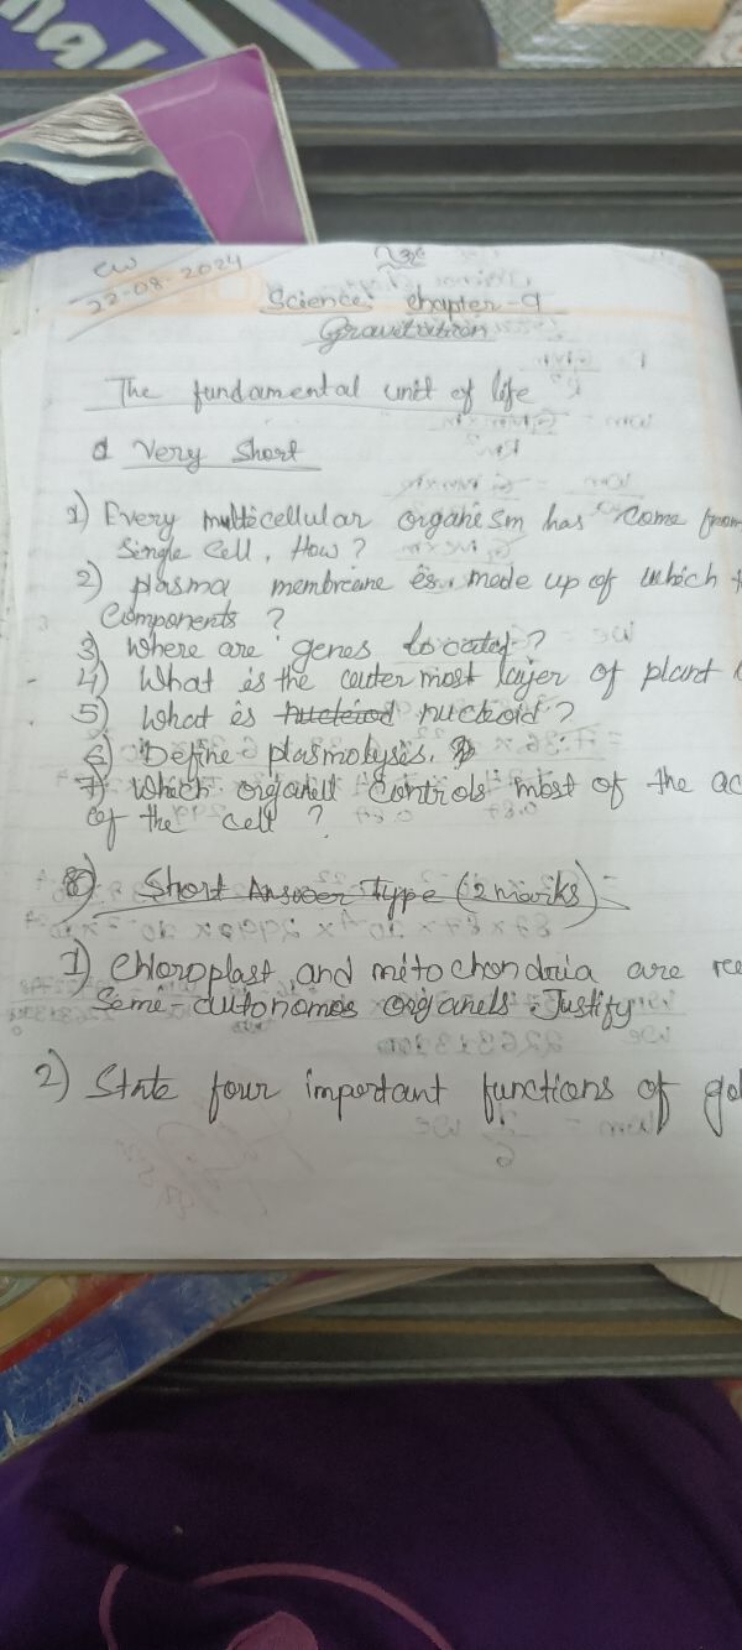 nal
CW
22-08-2024
Science chapter-9
Gravitation
The fundamental unit of life
Very Short
1) Every multicellular organism has come from
Single Cell, How?
2) plasma membrane is made up of which
Components ?
3) Where are genes located?
4) What is the outer most layer of plant
5) What is nucleoid?
6) Define plasmolysis.
7) Which organell Controls most of the ac
of the cell ?
8) Short Answer Type (2 marks)
1) Chloroplast and mitochondria are
Semi-autonomos organels. Justify
2) State four important functions of gol